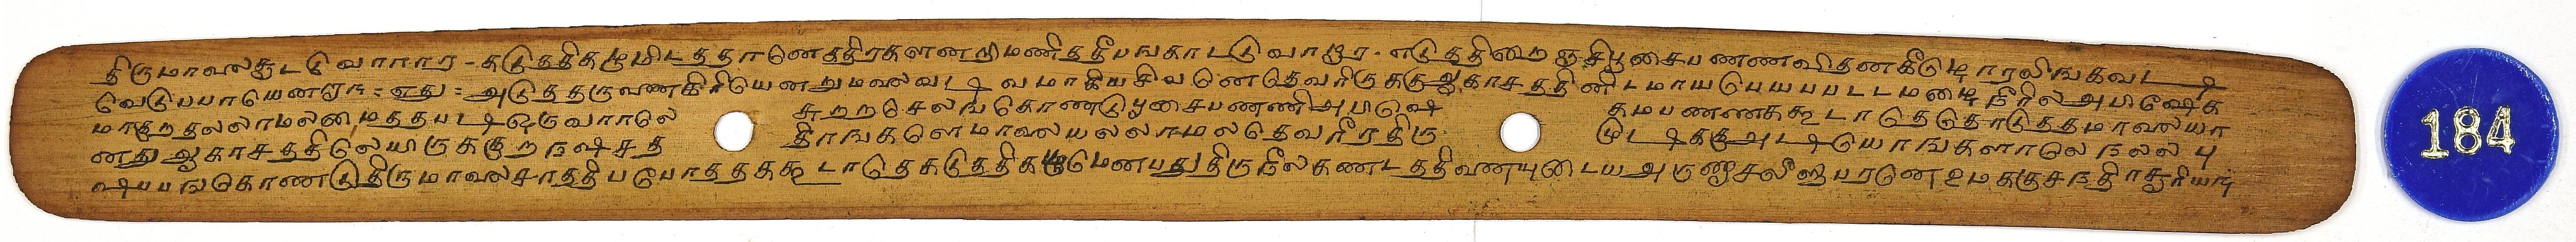 திருமாலைசூடடுவாராா - கடுததிகழுமிடததானெததிரகளனறிமணிததீபஙகாடடுவாரூா - எடுததிறைஞசிபூசைபணணவிதனகீடுழாரலிஙகவடி
வெடுபபாயெனறாந - எது - அடுததருவணகிரியெனறுமலைவடிவமாகியசிவனெதெவரிருககுஆகாசததினிடமாயபெயபபடடமழைநீரில அபிஷேக
மாகுறதலலாமலமைததபடிஒருவராலெ சுறறசெலஙகொணடுபூசைபணணிஅபிஷெ கமபணணககூடாதெதொடுததமாலையா
னது ஆகாசததிலெயிருககுற நஷசத திரஙகளெமாலையலலாமலதெவரீரதிரு முடிககுஅடியொஙகளாலெ நலல பு
ஷபபஙகொணடுதிருமாலைசாததிபபொததககூடாதெகடுததிகழுமெனபதுதிருநீலகணடததிவணயுடையஅருணாசலீஸபரனெஉமககுசநதிராசூரியாந